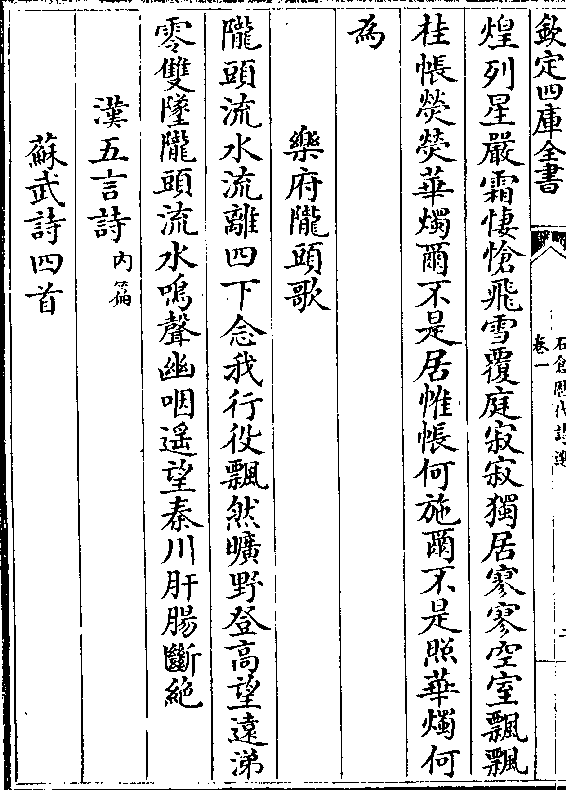 欽定四庫全書
石倉歷代詩選
卷一
煌列星嚴霜悽愴飛雪覆庭寂寂獨居寥寥空室飄飄
桂帳熒熒華燭爾不是居帷帳何施爾不是照華燭何
為
樂府隴頭歌
隴頭流水流離四下念我行役飄然曠野登高望遠涕
零雙墜隴頭流水鳴聲幽咽遥望秦川肝腸斷絶
漢五言詩 内篇
蘇武詩四首